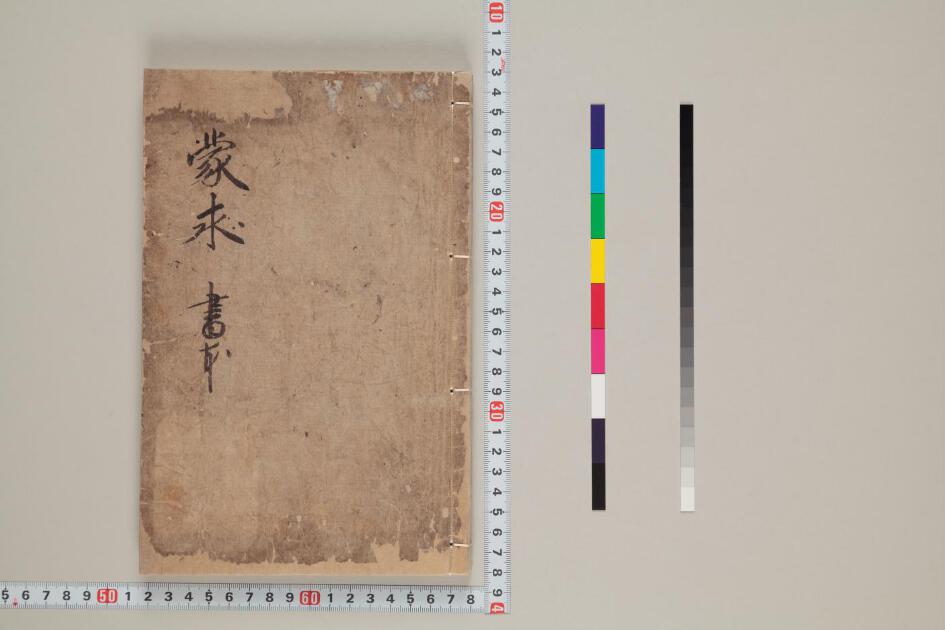 蒙求 書本
10 1 2 3 4 5 6 7 8 9 20 1 2 3 4 5 6 7 8 9 30 1 2 3 4 5 6 7 8 9 4
5 6 7 8 9 50 1 2 3 4 5 6 7 8 9 60 1 2 3 4 5 6 7 8